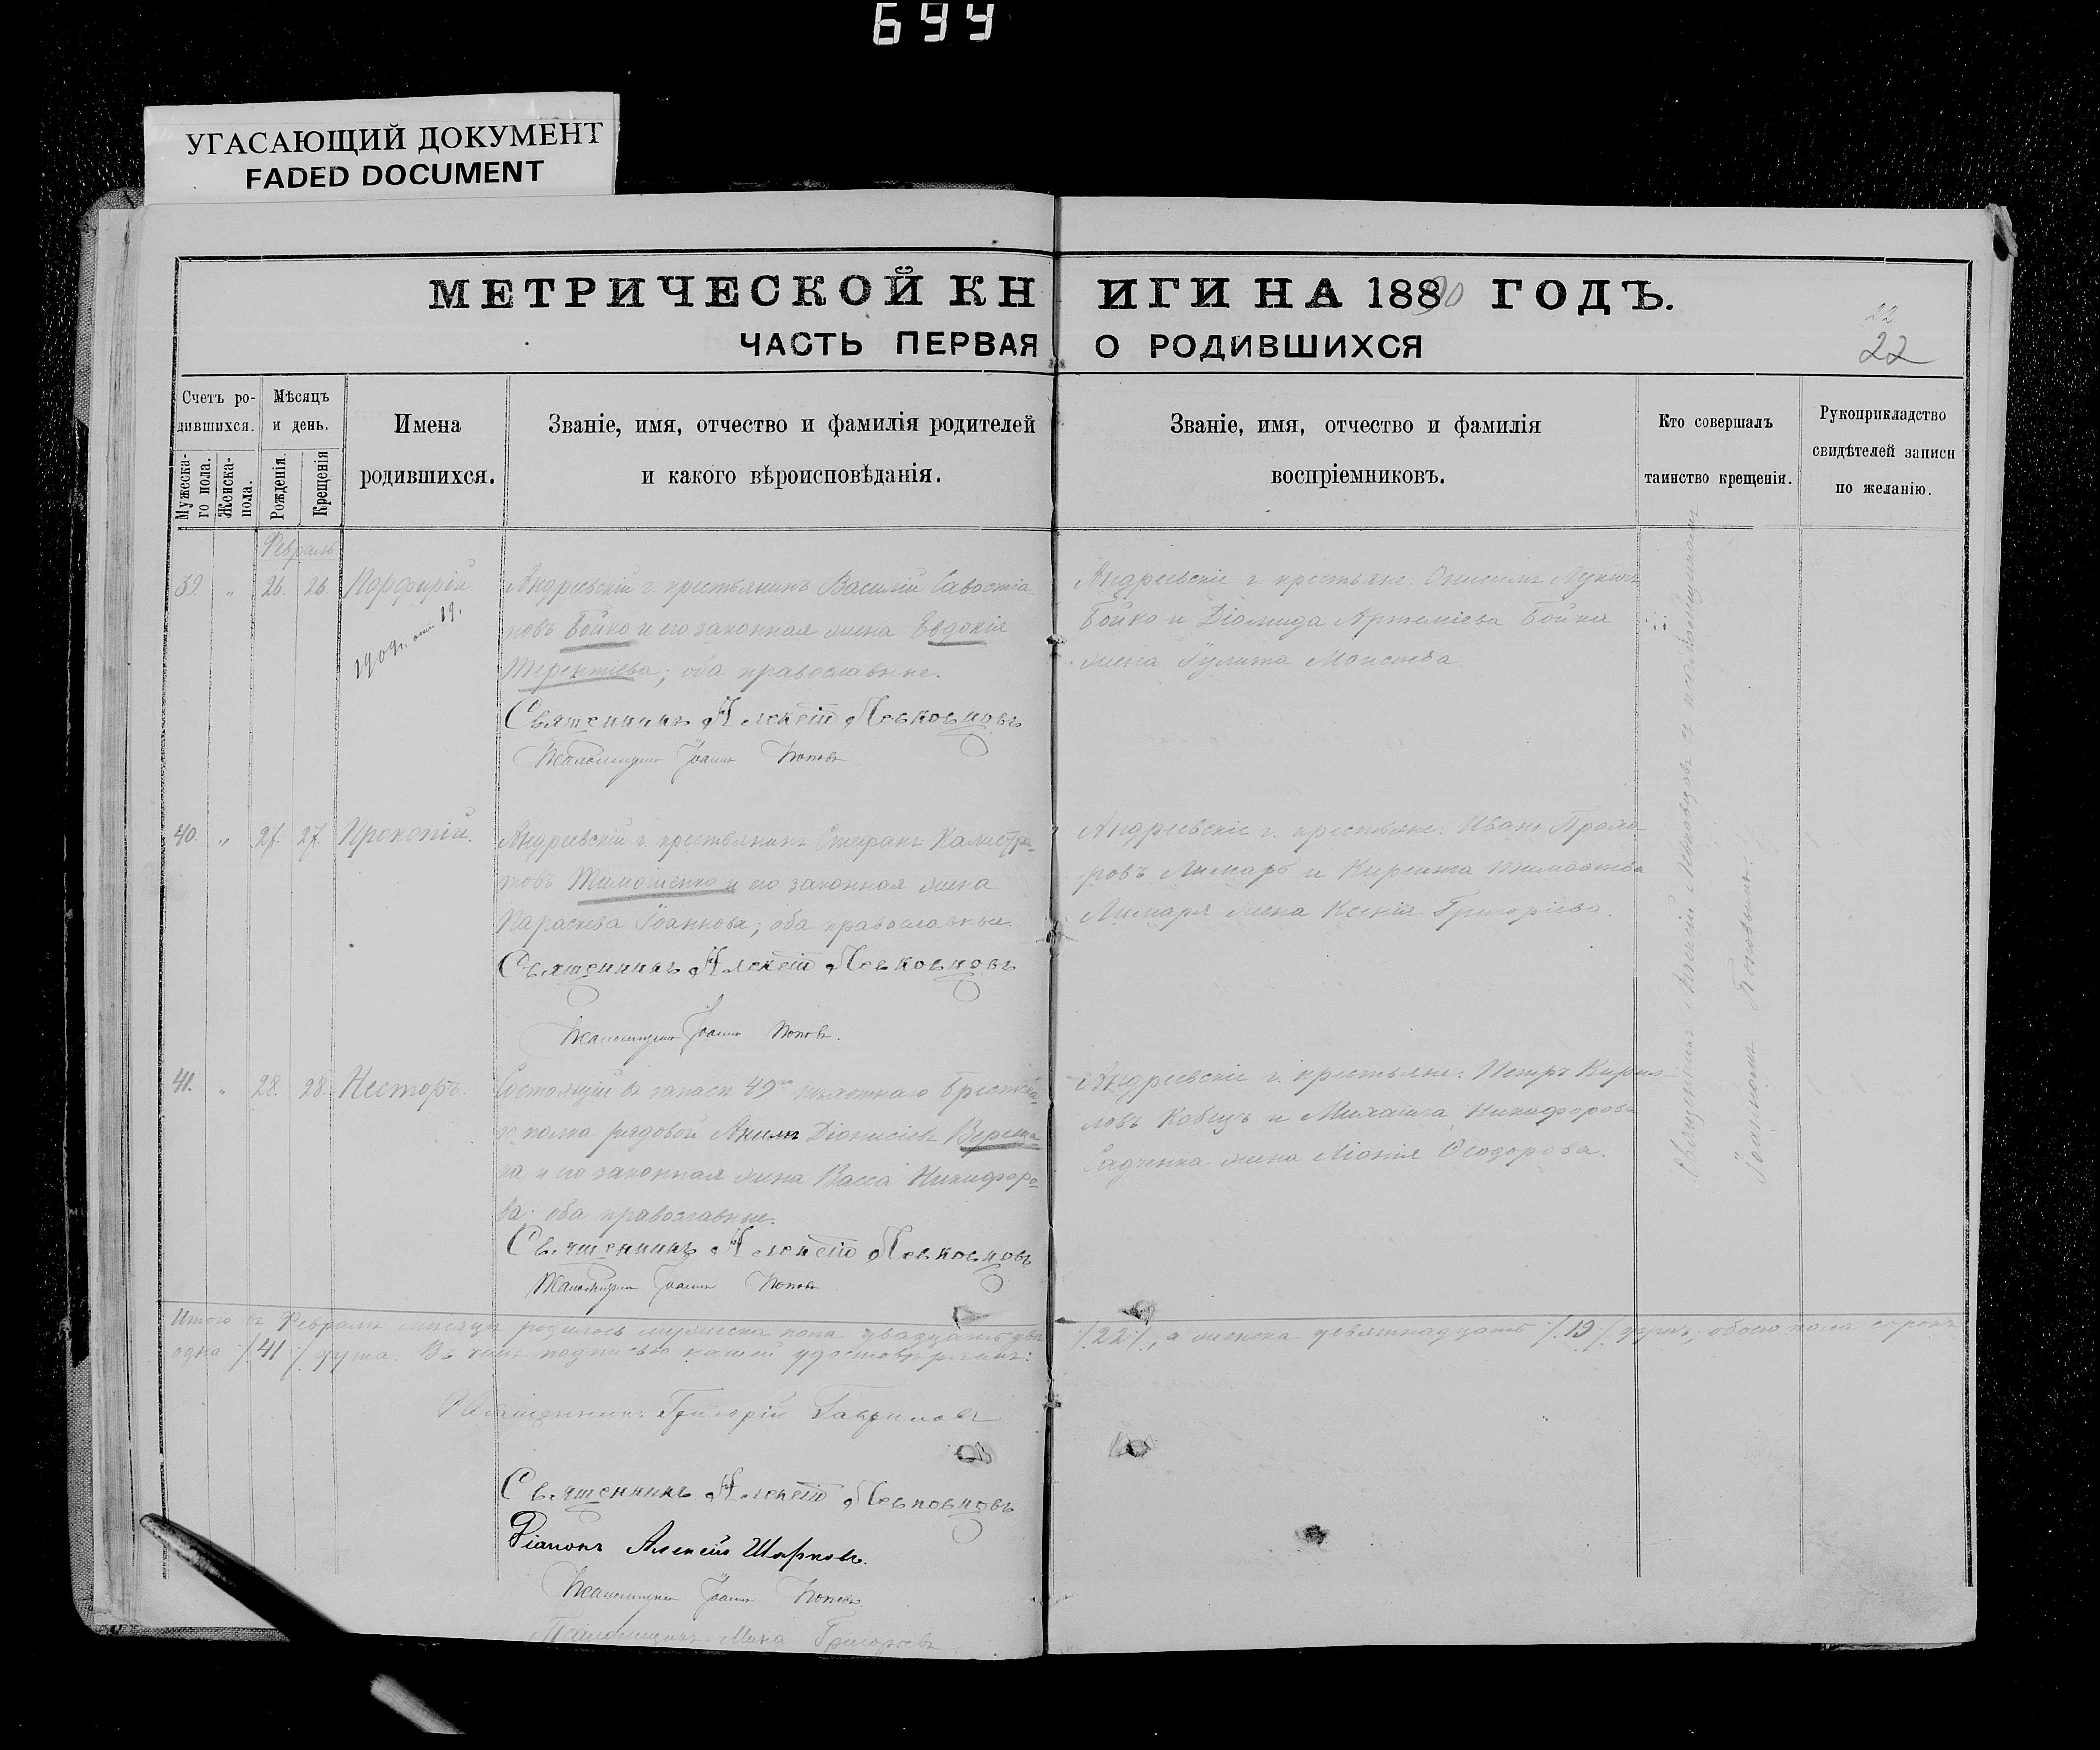 699
УГАСАЮЩИЙ ДОКУМЕНТ
FADED DOCUMENT
МЕТРИЧЕСКОЙ КНИГИ НА 1890 ГОДЪ.
ЧАСТЬ ПЕРВАЯ О РОДИВШИХСЯ
22
22
Счетъ ро-
дившихся.
Мужеска-
го пола.
Женска-
пола.
Мѣсяцъ
и день.
Рожденія.
Крещенія
Имена
родившихся.
Званіе, имя, отчество и фамилія родителей
и какого вѣроисповѣданія.
Званіе, имя, отчество и фамилія
воспріемниковъ.
Кто совершалъ
таинство крещенія.
Рукоприкладство
свидѣтелей записи
по желанію.
Февраль
39. " 26. 26. Порфирій
Андреевскій г. крестьянинъ Василій Савостіа-
новъ Бойко и его законная жена Евдокія
Терентіева; оба православные.
Священникъ Алексій Левковцовъ
Псаломщикъ Іоаннъ Поповъ
Андреевскіе г. крестьяне: Онисимъ Лукинъ
Бойко и Діомида Артеміева Бойка
жена Іулита Моисеева.
40. " 27. 27. Прокопій.
Андреевскій г. крестьянинъ Стефанъ Калистра-
товъ Тимошенко и его законная жена
Параскева Іоаннова; оба православные.
Священникъ Алексій Левковцовъ
Псаломщикъ Іоаннъ Поповъ.
Андреевскіе г. крестьяне: Иванъ Прохо-
ровъ Лимарь и
Лимаря жена Ксенія Григоріева.
41. " 28. 28. Несторъ.
Состоящій въ запасѣ 49го пѣхотнаго Брестска-
го полка рядовой Акимъ Діонисіевъ Вереща-
ка и его законная жена Васса Никифоро-
ва: оба православные.
Священникъ Алексій Левковцовъ
Псаломщикъ Іоаннъ Поповъ
Андреевскіе г. крестьяне: Петръ Кирил-
ловъ Кобецъ и Михаила Никифорова
Садченка жена Ѳеодорова.
Священникъ Алексій Левковцовъ съ псаломщикомъ
Іоанномъ Поповымъ.
Итого въ Февралѣ мѣсяцѣ родилось мужеска пола двадцать два /22/, а женска девятнадцать /19/ душъ, обоего пола сорокъ
одна /41/ душа. Въ чемъ подписью нашей удостовѣряемъ:
Священникъ Григорій Гавриловъ
Священникъ Алексій Левковцовъ
Діаконъ Алексій Шарковъ.
Псаломщикъ Іоаннъ Поповъ.
Псаломщикъ Мина Григорьевъ